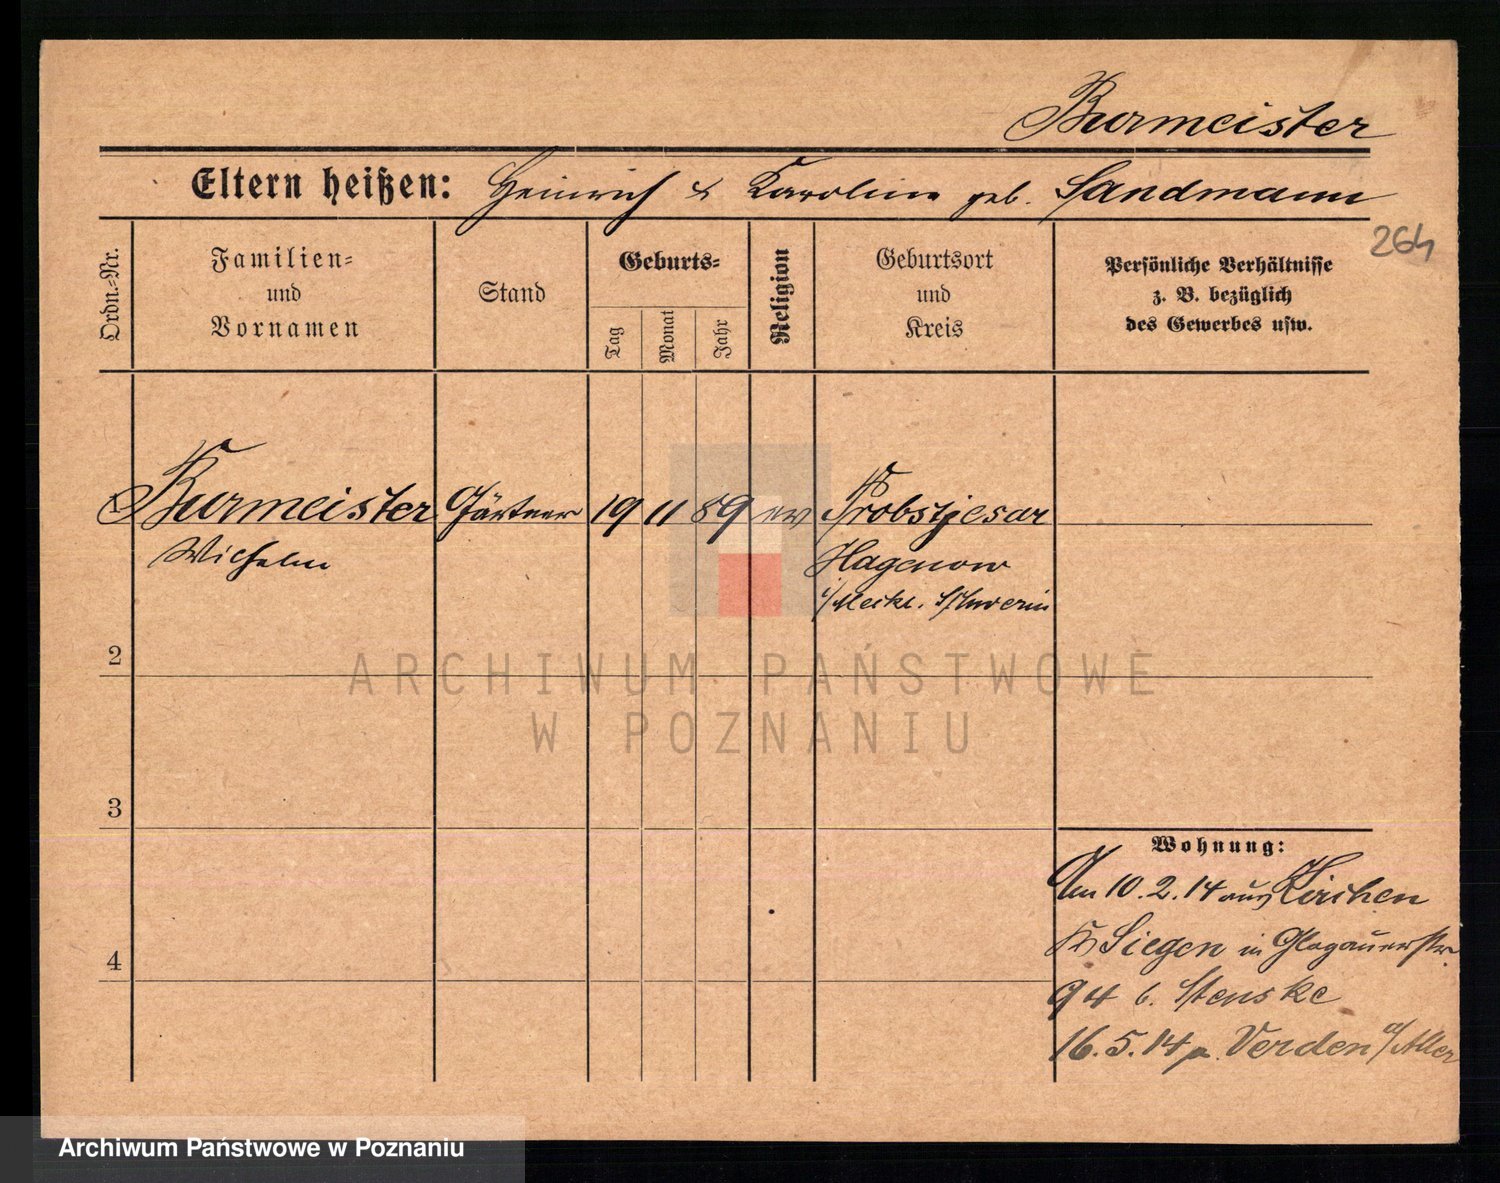 Burmeister
Eltern heißen: Heinrich & Karoline geb. Sandmann
264
Ordn.-Nr.
Familien-
und
Vornamen
Stand
Geburts-
Tag
Monat
Jahr
Religion
Geburtsort
und
Kreis
Persönliche Verhältnisse
z. B. bezüglich
des Gewerbes usw.
1 Burmeister Gärtner 19 11 89 ev Probstjesar
Wilhelm Hagenow
i/Meckl. Schwerin
2
ARCHIWUM PAŃSTWOWE
W POZNANIU
3
Wohnung:
Am 10.2.14 aus Kirchen
Kr Siegen in Glogauerstr.
94 b. Stenske
16.5.14 n. Verden a/Aller
4
Archiwum Państwowe w Poznaniu